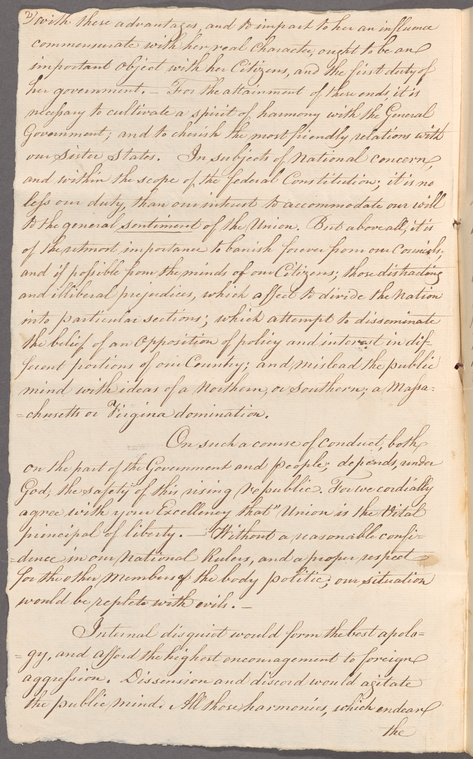 2/ with these advantages, and to impart to her an influence
commensurate with her real Character, ought to be an
important object with her Citizens, and the first duty of
her government. — For the attainment of these ends it is
necessary to cultivate a spirit of harmony with the General
Government, and to cherish the most friendly relations with
our Sister States. In subjects of National concern,
and within the scope of the federal Constitution, it is no
less our duty, than our interest to accommodate our will
to the general sentiment of the Union. But above all, it is
of the utmost importance to banish forever from our Councils,
and if possible from the minds of our Citizens; those distracting
and illiberal prejudices, which affect to divide the Nation
into particular sections; which attempt to disseminate
the belief of an opposition of policy and interest in dif-
ferent portions of our Country; and mislead the public
mind with ideas of a Northern, or Southern; a Massa-
=chusetts or Virginia domination.
On such a course of Conduct, both
on the part of the Government and people, depends, under
God, the safety of this rising republic. For we cordially
agree with your Excellency that "Union is the Vital
principal of liberty. — Without a reasonable confi-
=dence in our National Rulers, and a proper respect
for the other Members of the body politic; our situation
would be replete with evils. —
Internal disquiet would form the best apolo-
=gy, and afford the highest encouragement to foreign
aggression. Dissension and discord would agitate
the public mind. All those harmonies, which endear
the